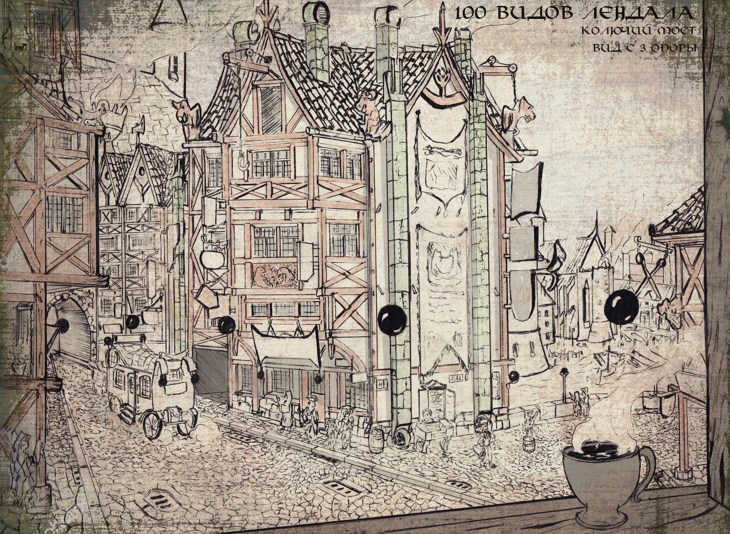 100 ВИДОВ ЛЕНДАЛА
КОЛЮЧИЙ МОСТ
ВИД С 3 ОПОРЫ